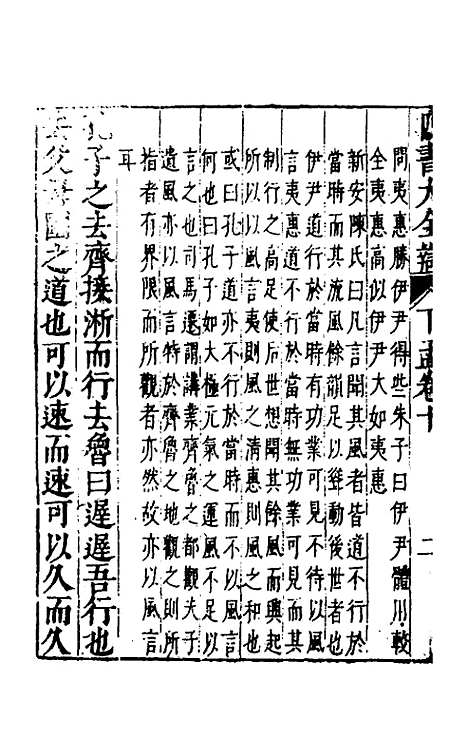 四書大全辯 下孟卷十 二
問夷惠勝伊尹得些朱子曰伊尹體用較
全夷惠高似伊尹大如夷惠
新安陳氏曰凡言聞其風者皆道不行於
當時而其流風餘韻足以聳動後世者也
伊尹道行於當時有功業可見不待以風
言夷惠道不行於當時無功業可見而其
制行之高足使后世想聞其餘風而興起
所以以風言夷則風之清惠則風之和也
或曰孔子道亦不行於當時而不以風言
何也曰孔子如大極元氣之運風不足以
言之也司馬遷謂講業齊魯之都觀夫子
遺風亦以風言特於齊魯之地觀之則所
指者有界限而所觀者亦然故亦以風言
耳
孔子之去齊接淅而行去魯曰遲遲吾行也
去父母國之道也可以速而速可以久而久